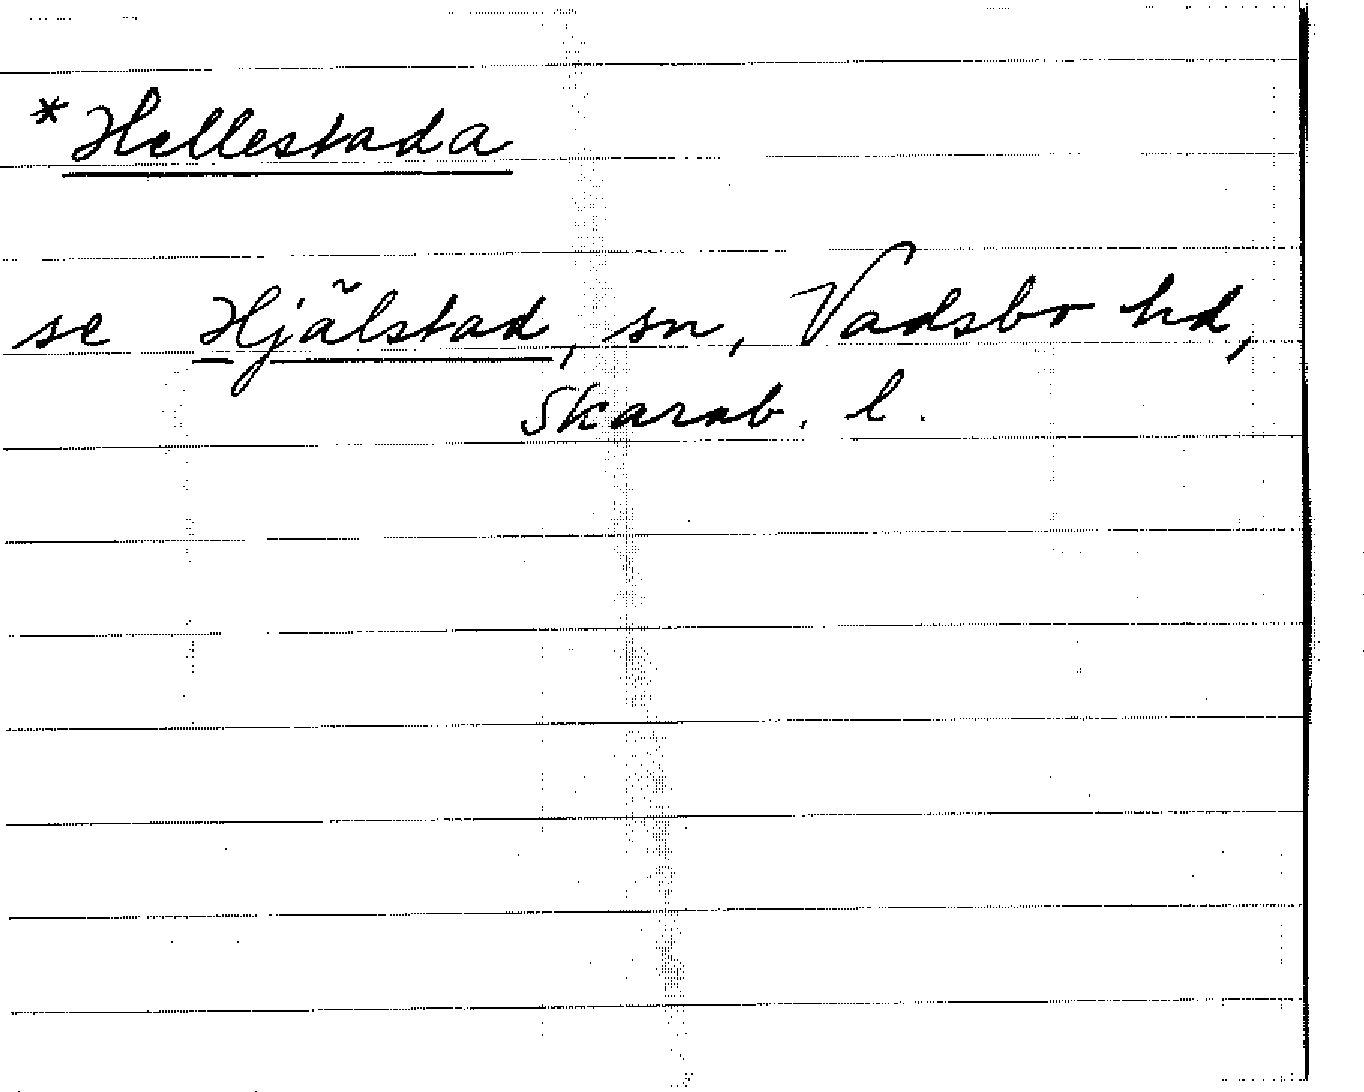 *Hellestada
se Hjälstad, sn, Vadsbo hd,
Skarab. l.